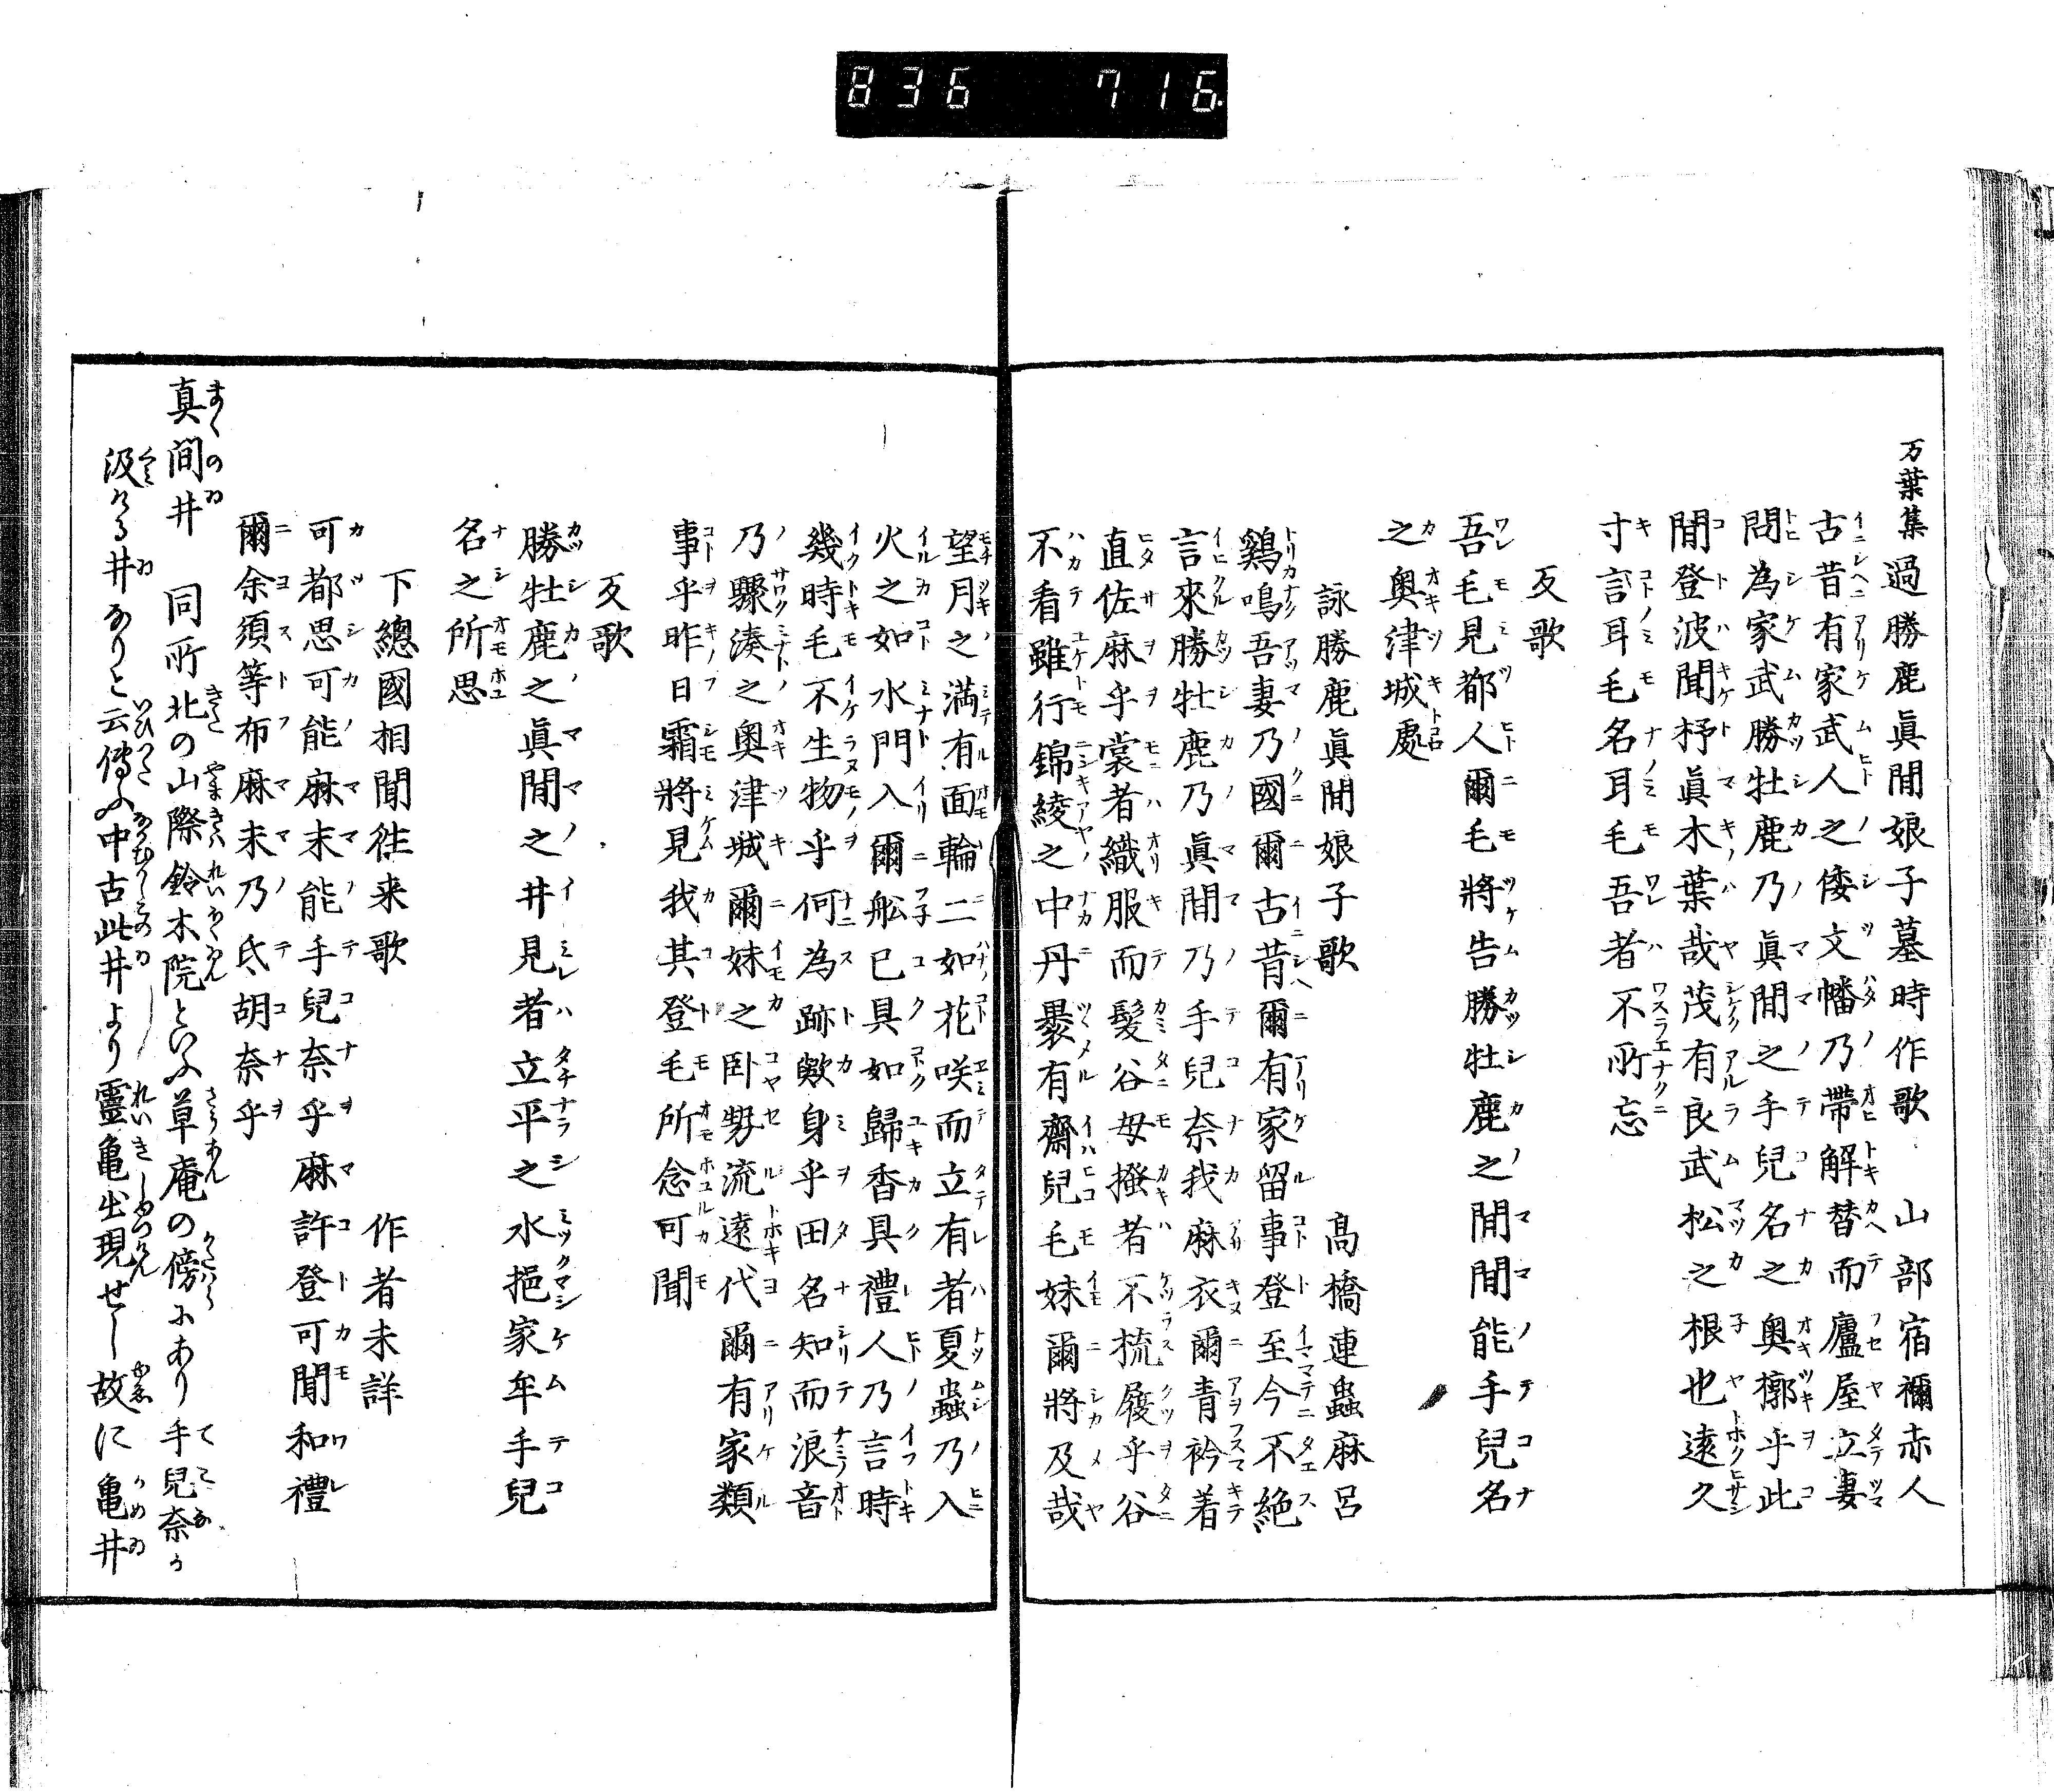 836 716.
万葉集 過勝鹿眞間娘子墓時作歌 山部宿禰赤人
古昔有家武人之倭文幡乃帶解替而廬屋立妻
問為家武勝牡鹿乃眞間之手兒名之奥槨乎此
間登波聞杼眞木葉哉茂有良武松之根也遠久
寸言耳毛名耳毛吾者不所忘
反歌
吾毛見都人爾毛將告勝牡鹿之間間能手兒名
之奥津城處
詠勝鹿眞間娘子歌 髙橋連蟲麻呂
鷄鳴吾妻乃國爾古昔爾有家留事登至今不絶
言來勝牡鹿乃眞間乃手兒奈我麻衣爾青衿着
直佐麻乎裳者織服而髪谷母掻者不梳履乎谷
不看雖行錦綾之中丹褁有齋兒毛妹爾將及哉
望月之満有面輪二如花咲而立有者夏蟲乃入
火之如水門入爾舩己具如歸香具禮人乃言時
幾時毛不生物乎何為跡歟身乎田名知而浪音
乃驟湊之奥津城爾妹之卧勢流遠代爾有家類
事乎昨日霜將見我其登毛所念可聞
反歌
勝牡鹿之眞間之井見者立平之水挹家牟手兒
名之所思
下總國相聞徃来歌 作者未詳
可都思可能麻末能手兒奈乎麻許登可聞和禮
爾余須等布麻末乃氐胡奈乎
真間井 同所北の山際鈴木院といふ草庵の傍にあり手兒奈か
汲ける井なりと云傳ふ中古此井より靈亀出現せし故に亀井